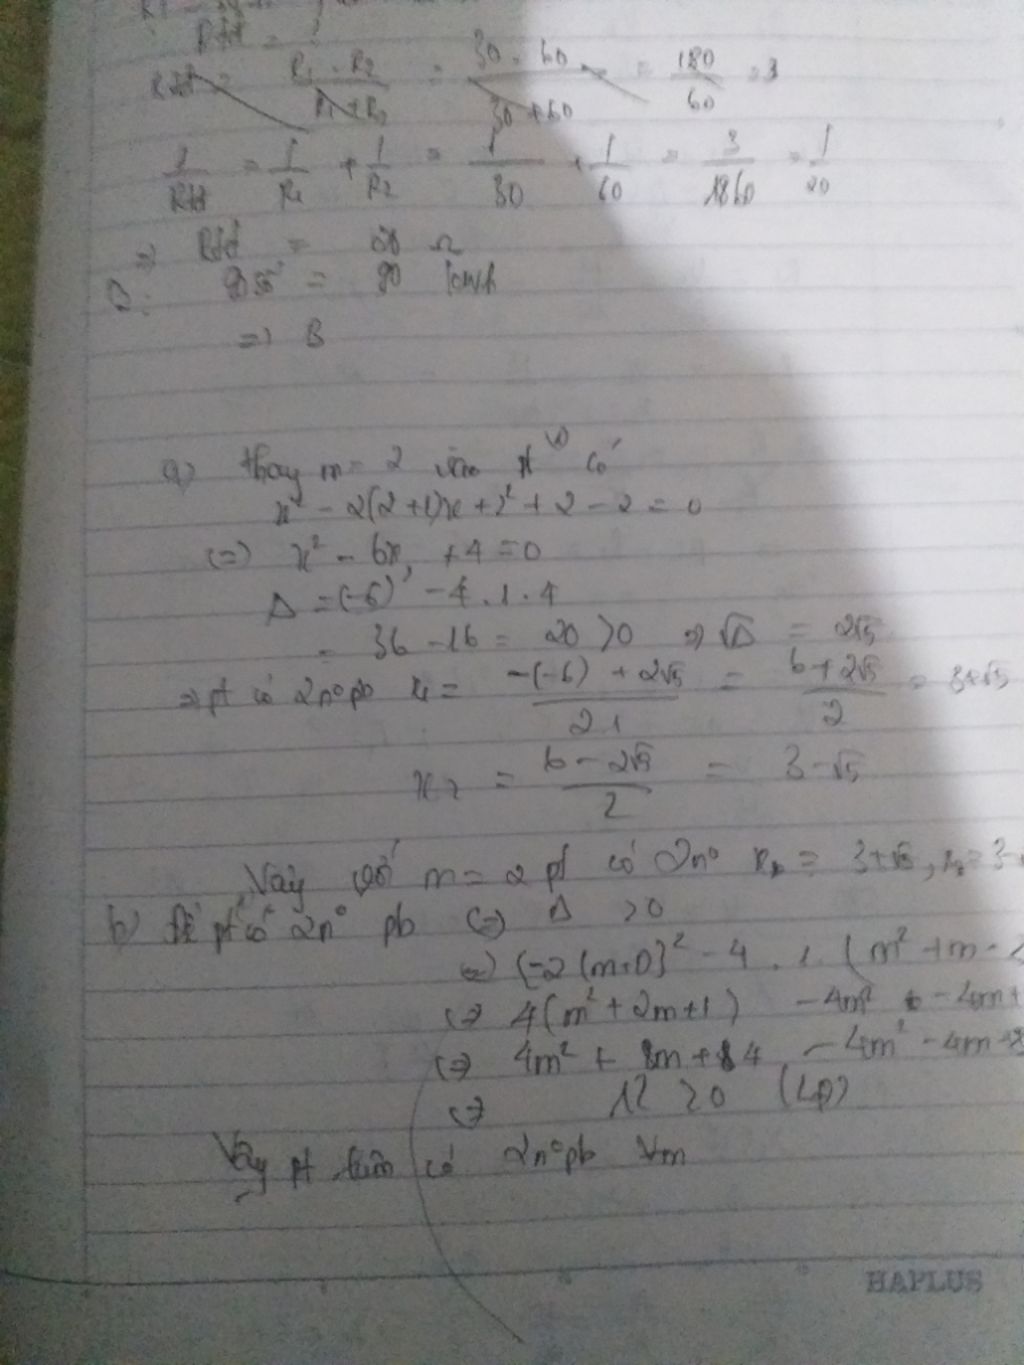 Rtđ = ?
Rtđ = R1 . R2 / R1 + R2 = 30 . 60 / 30 + 60 = 180 / 60 = 3
1 / Rtđ = 1 / R1 + 1 / R2 = 1 / 30 + 1 / 60 = 3 / 1860 = 1 / 20
=> Rtđ = Ω
= 90 kWh
=> B
a) thay m = 2 vào pt (1) có
x² - 2(2+1)x + 2² + 2 - 2 = 0
(=) x² - 6x + 4 = 0
Δ = (-6)² - 4.1.4
= 36 - 16 = 20 > 0 => √Δ = 2√5
=> pt có 2n° pb x1 = -(-6) + 2√5 / 2.1 = 6 + 2√5 / 2 = 3+√5
x2 = 6 - 2√5 / 2 = 3 - √5
Vậy với m = 2 pt có 2n° x1 = 3+√5, x2 = 3-
b) Để pt có 2n° pb (=) Δ > 0
(=) (-2(m+1))² - 4 . 1. (m² + m - 2
(=) 4(m² + 2m + 1) - 4m² - 4m +
(=) 4m² + 8m + 4 - 4m² - 4m + 8
(=) 12 > 0 (LĐ)
Vậy pt luôn có 2n° pb ∀m
HAPLUS